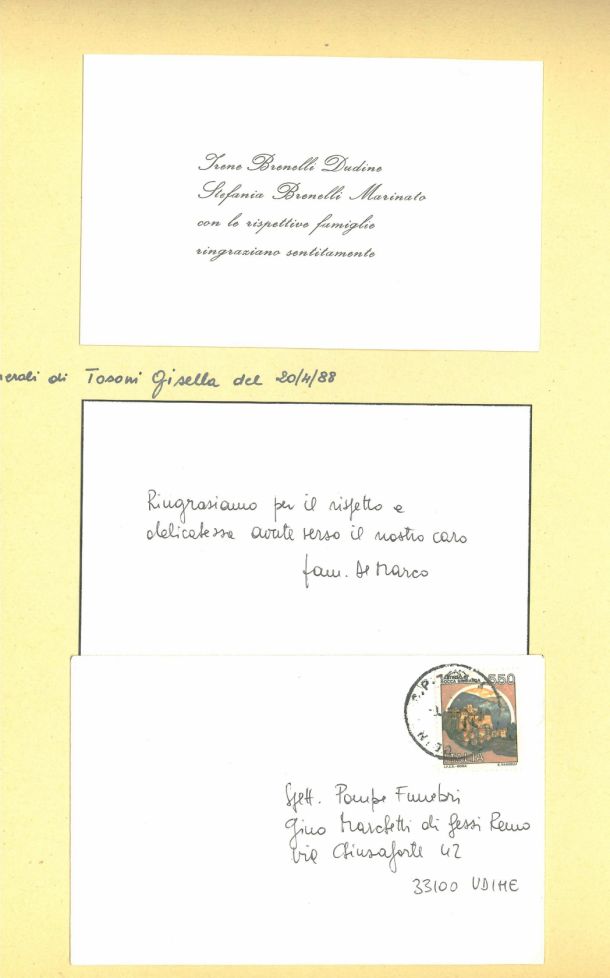 Irene Brenelli Dudine
Stefania Brenelli Marinato
con le rispettive famiglie
ringraziano sentitamente
di Tosoni Gisella del 20/4/88
Ringraziamo per il rispetto e
delicatezza avute verso il nostro caro
fam. De Marco
ROCCA
550
ITALIA
Spett. Pompe Funebri
Gino Marchetti di Gessi Remo
Via Chiusaforte 42
33100 UDINE